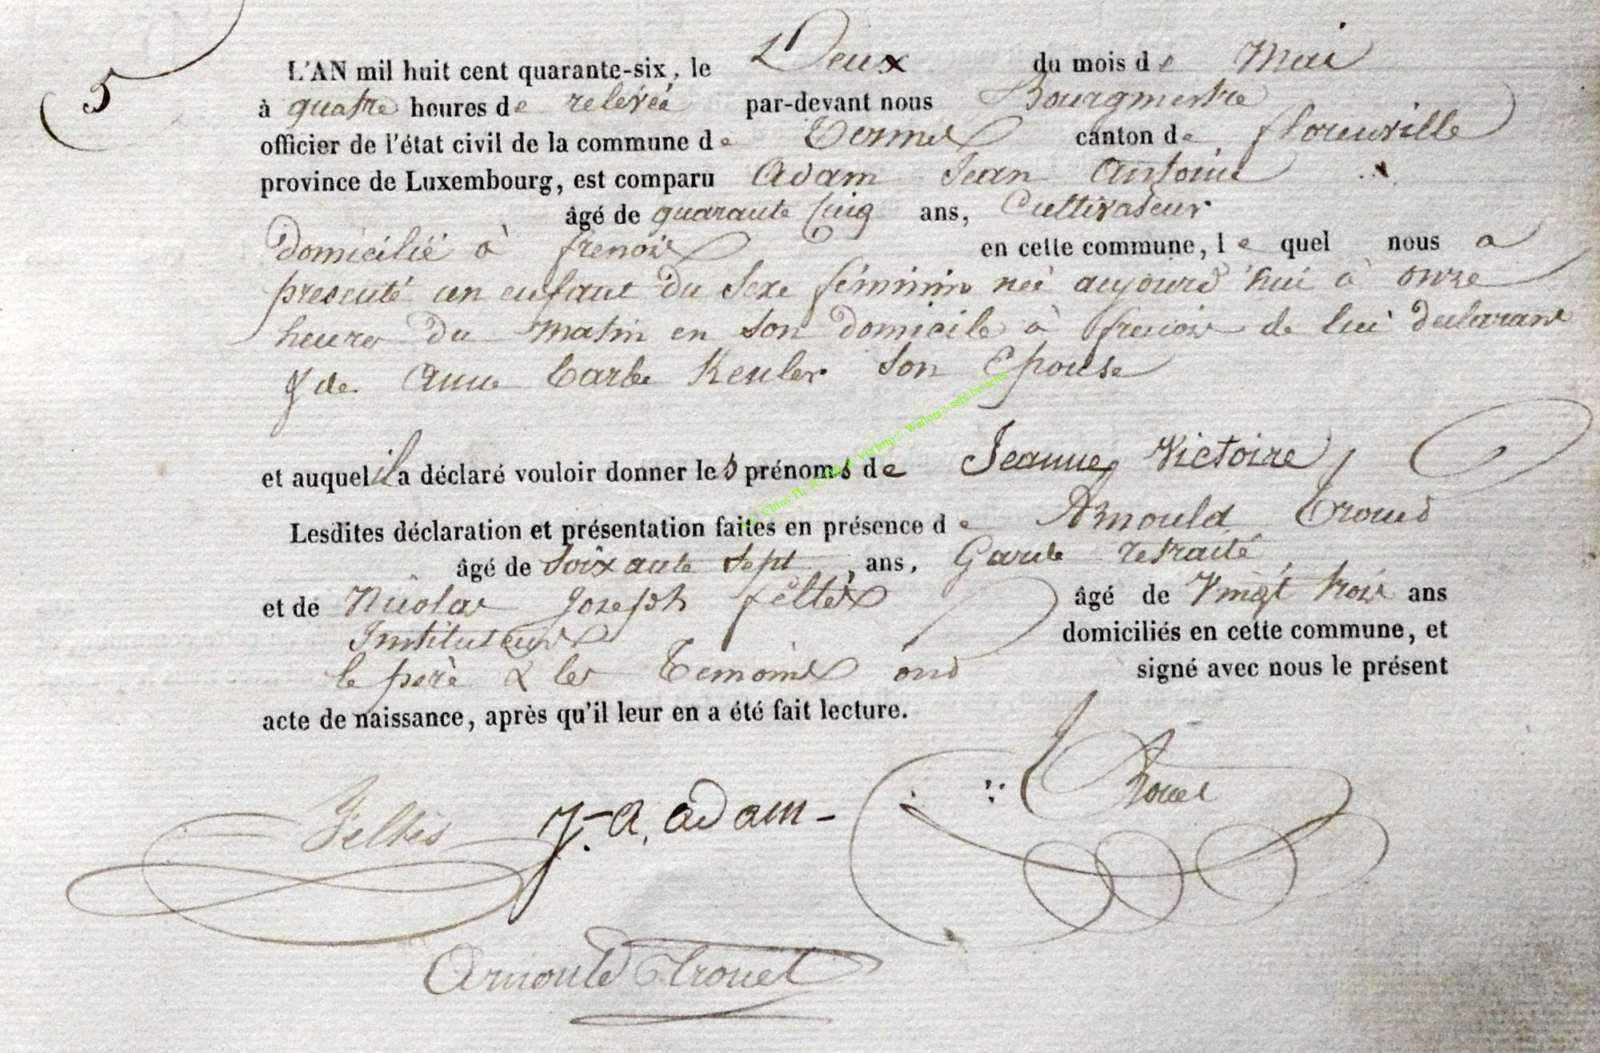 5
L'AN mil huit cent quarante-six, le Deux du mois de Mai
à quatre heures de relevée par-devant nous Bourgmestre
officier de l'état civil de la commune de Termes canton de florenville
province de Luxembourg, est comparu Adam Jean Antoine
âgé de quarante Cinq ans, Cultivateur
domicilié à frenois en cette commune, le quel nous a
presenté un enfant du Sexe féminin née aujourd'hui à onze
heures du matin en son domicile à frenois de lui declarant
& de Anne Barbe Keuler Son Epouse
et auquel il a déclaré vouloir donner les prénoms de Jeanne Victoire
Lesdites déclaration et présentation faites en présence de Arnould
âgé de Soixante Sept ans, Garde retraité
et de Nicolas Joseph feltés âgé de Vingt trois ans
Instituteur domiciliés en cette commune, et
le père & les Temoins ond signé avec nous le présent
acte de naissance, après qu'il leur en a été fait lecture.
Feltés J. A. adam
Arnould